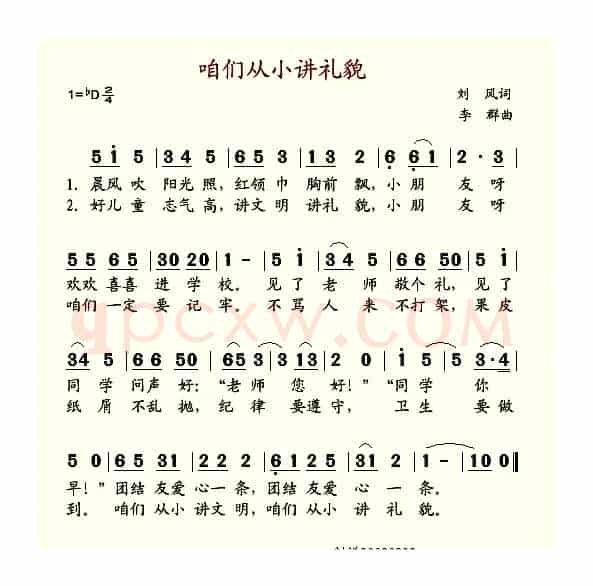 咱们从小讲礼貌
1=♭D 2/4
刘 风词
李 群曲
5 i 5 | 3 4 5 | 6 5 3 | 1 3 2 | 6 6 1 | 2 · 3 |
1. 晨风 吹 阳光 照, 红领 巾 胸前 飘, 小 朋 友 呀
2. 好儿 童 志气 高, 讲文 明 讲礼 貌, 小 朋 友 呀
5 5 6 5 | 3 0 2 0 | 1 - | 5 i | 3 4 5 | 6 6 5 0 | 5 i |
欢欢 喜喜 进 学 校。 见 了 老 师 敬个 礼, 见 了
咱们 一定 要 记 牢。 不 骂 人 来 不打 架, 果 皮
3 4 5 | 6 6 5 0 | 6 5 3 | 3 1 3 | 2 0 | i 5 | 5 5 | 3 · 4 |
同 学 问声 好: “老 师 您 好!” “同 学 你
纸 屑 不乱 抛, 纪 律 要遵 守, 卫 生 要 做
5 0 | 6 5 3 1 | 2 2 2 | 6 2 | 6 5 3 5 | 3 1 2 | 1 - | 1 0 0 ‖
早!” 团结 友爱 心 一 条, 团结 友爱 心 一 条。
到。 咱们 从小 讲 文 明, 咱们 从小 讲 礼 貌。
qpcxw.COM